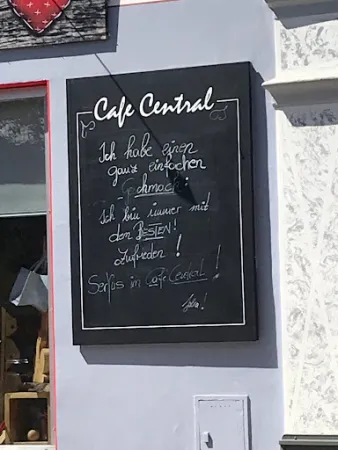 Cafe Central
Ich habe einen
ganz einfachen
Geschmack
Ich bin immer mit
dem BESTEN!
zufrieden!
Servus im Cafe Central!